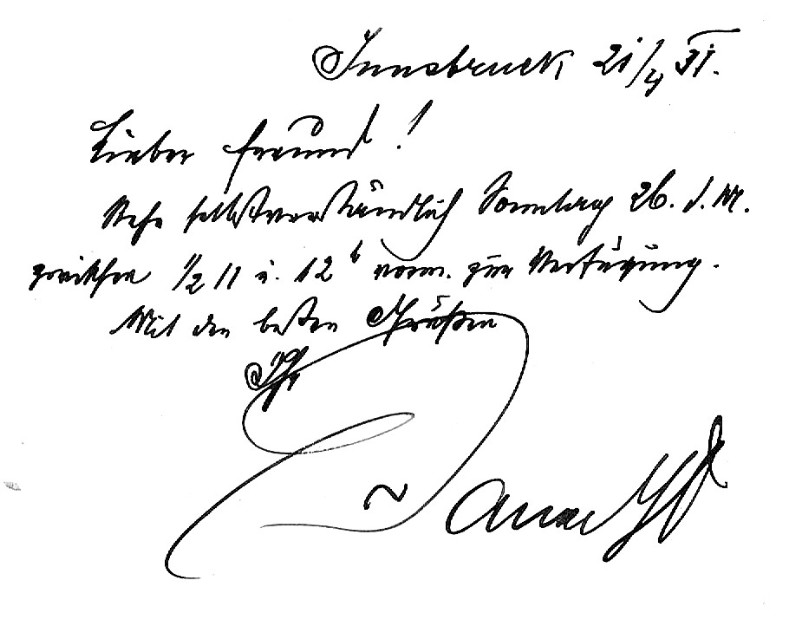 Innsbruck 21/4 31.
Lieber Freund!
Stehe selbstverständlich Sonntag 26. d. M.
zwischen 1/2 11 u. 12 h vorm. zur Verfügung.
Mit den besten Grüßen
Ihr